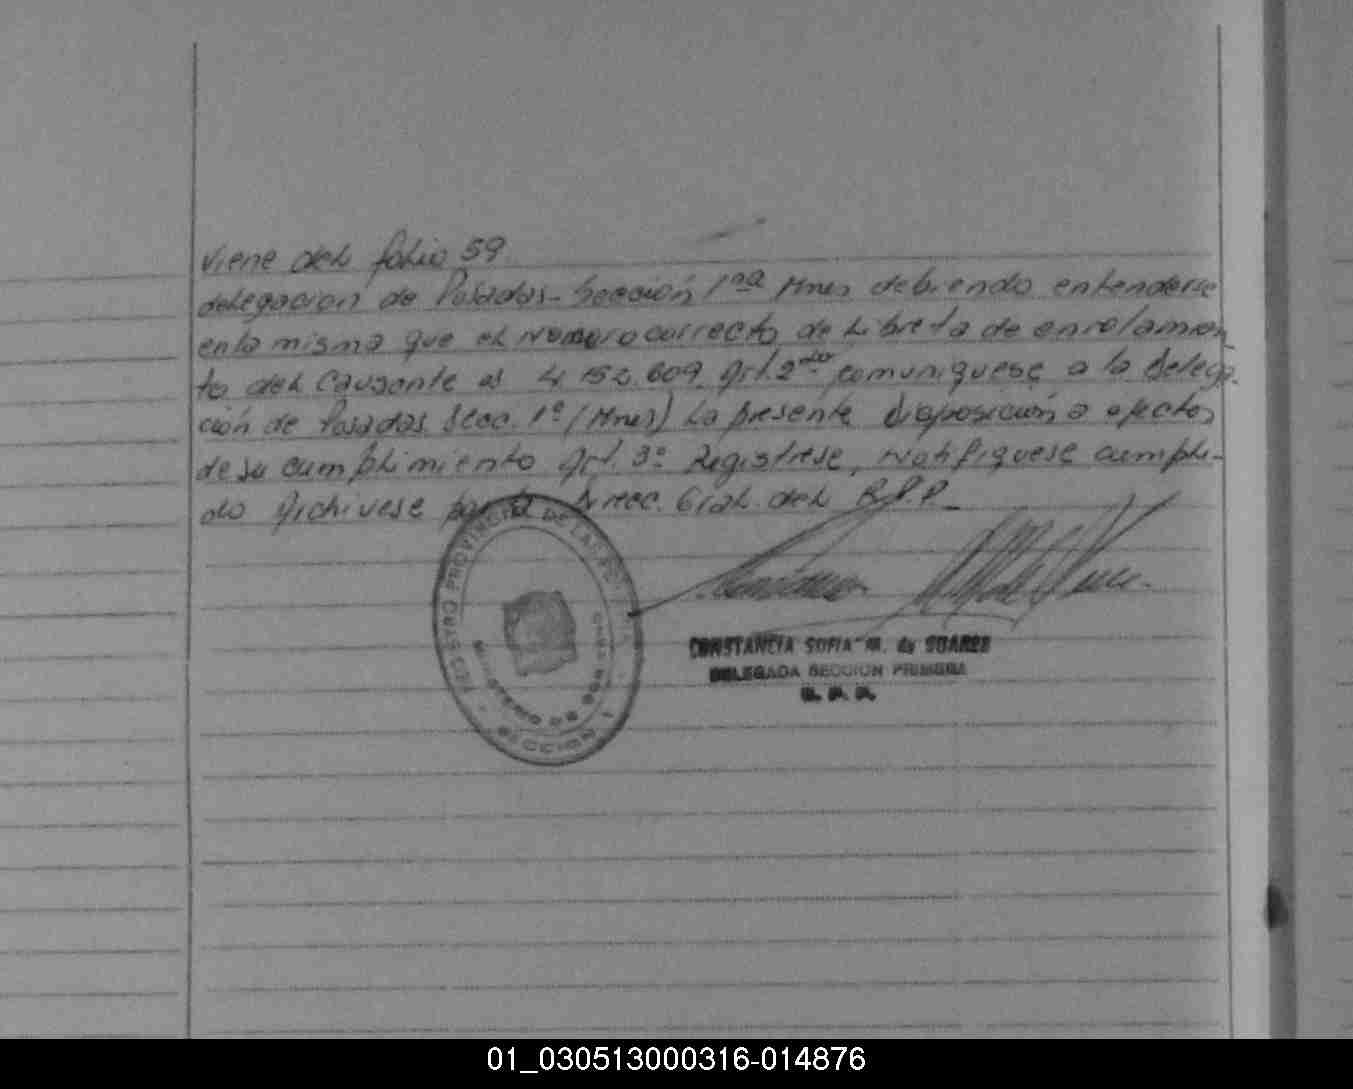 Viene del folio 59
delegacion de Posadas - Sección 1ra Mnes debiendo entenderse
en la misma que el numero correcto de Libreta de enrolamien_
to del Causante es 4.152.609. Art. 2do comuniquese a la delega_
ción de Posadas Secc. 1ª (Mnes) La presente disposición a efectos
de su cumplimiento Art. 3º Registrese, notifiquese cumpli-
do Archivese por la Direc. Gral. del R.P.P._
REGISTRO PROVINCIAL DE LAS PERSONAS
MINISTERIO DE GOBIERNO
SECCION 1
CONSTANCIA SOFIA M. de SUAREZ
DELEGADA SECCION PRIMERA
R. P. P.
01_030513000316-014876